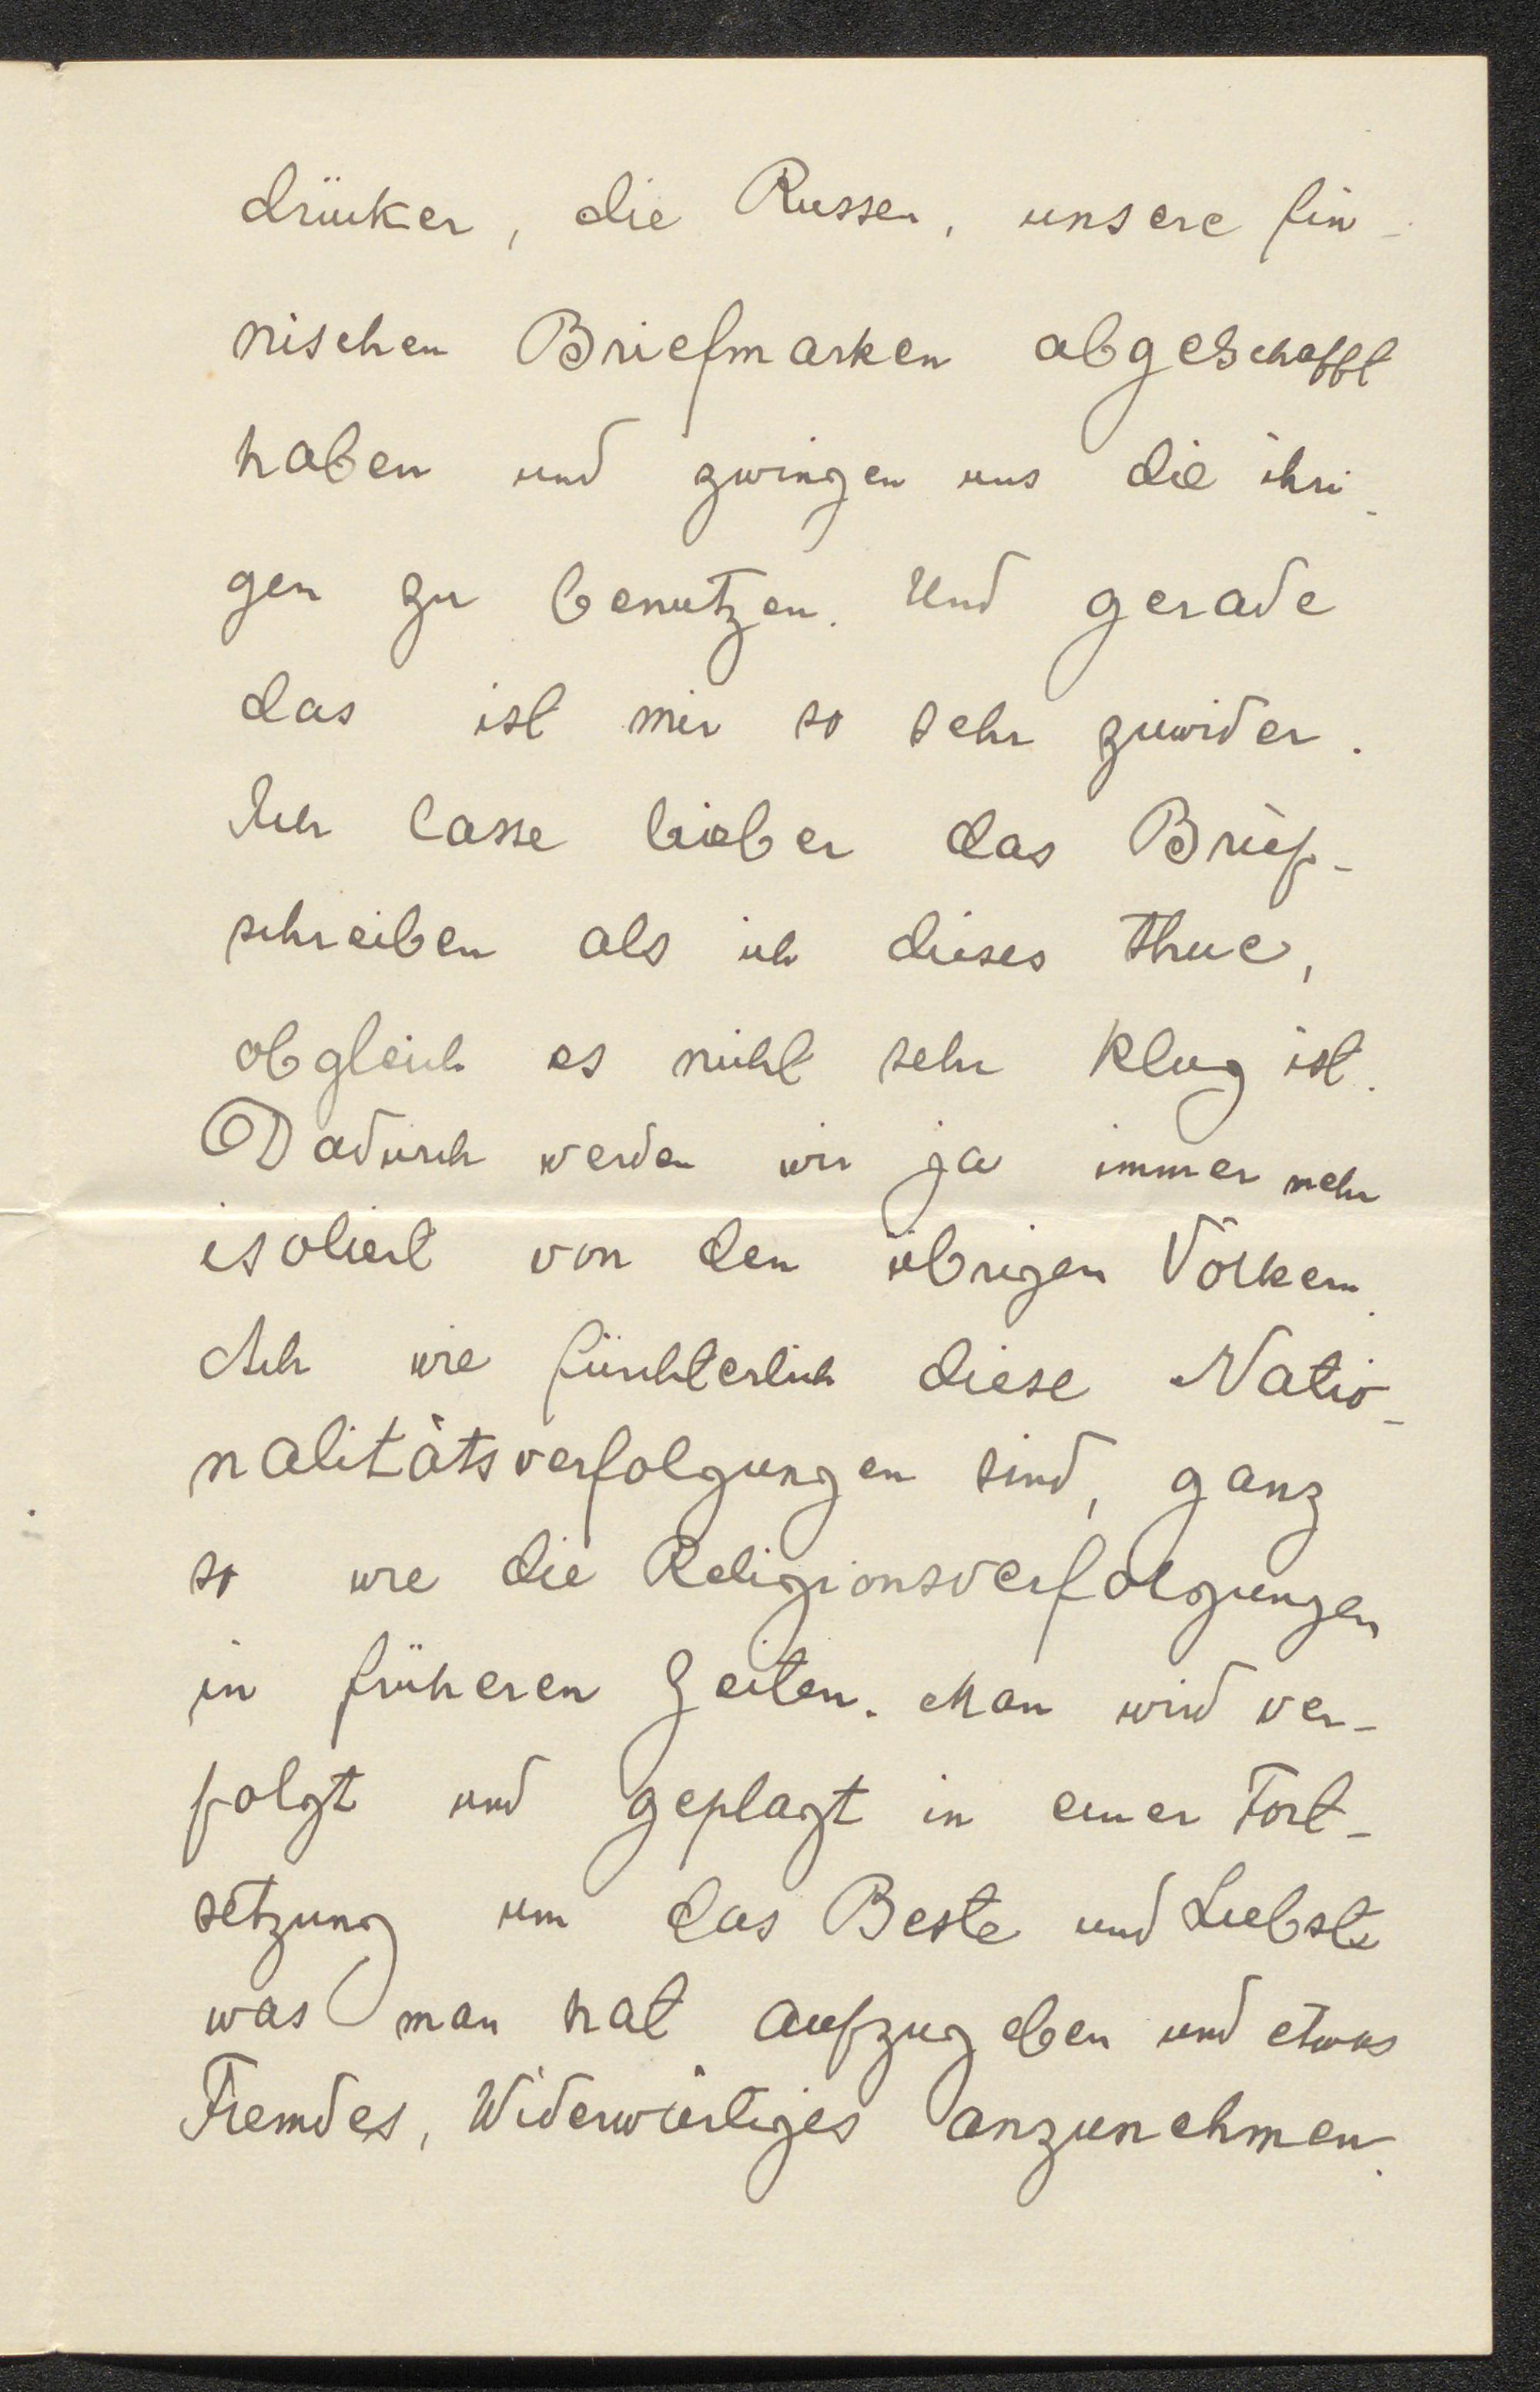 drücker, die Russen, unsere fin-
nischen Briefmarken abgeschafft
haben und zwingen uns die ihri-
gen zu benutzen. Und gerade
das ist mir so sehr zuwider.
Ich lasse lieber das Brief-
schreiben als ich dieses thue,
obgleich es nicht sehr klug ist.
Dadurch werden wir ja immer mehr
isoliert von den übrigen Völkern.
Ach wie fürchterlich diese Natio-
nalitätsverfolgungen sind, ganz
so wie die Religionsverfolgungen
in früheren Zeiten. Man wird ver-
folgt und geplagt in einer Fort-
setzung um das Beste und Liebste
was man hat aufzugeben und etwas
Fremdes, Widerwärtiges anzunehmen.